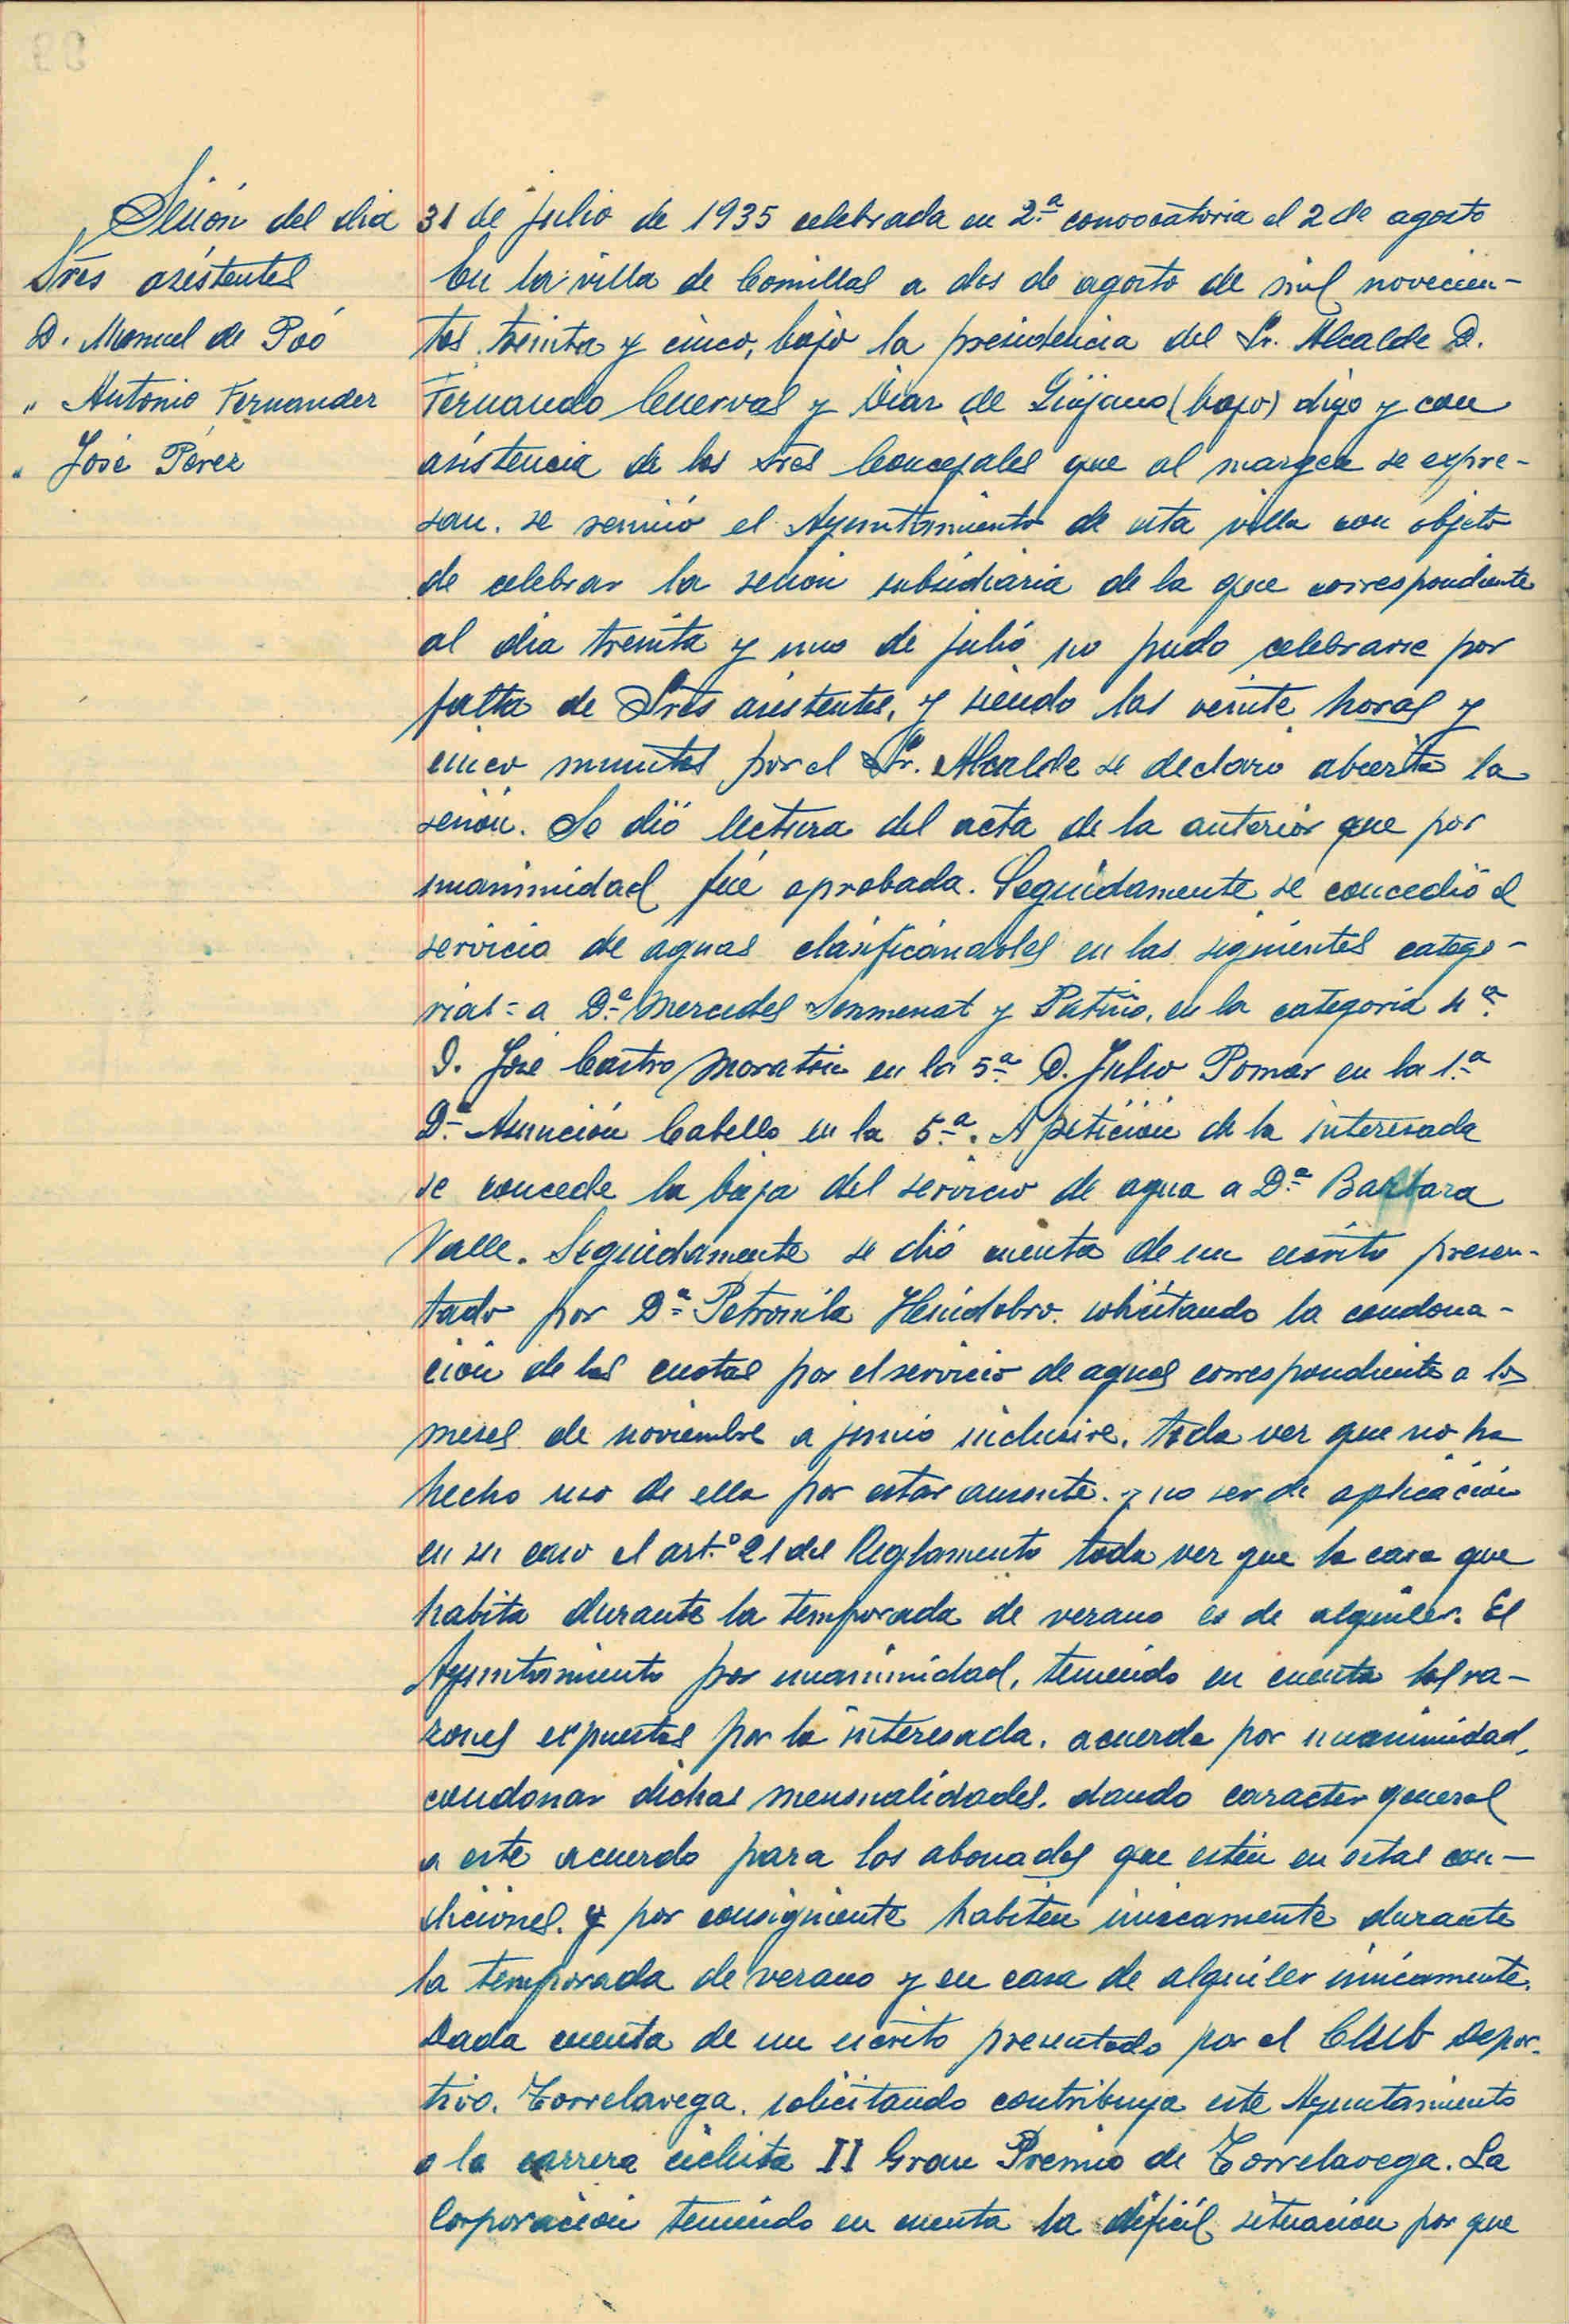 Sesión del dia 31 de julio de 1935 celebrada en 2.ª convocatoria el 2 de agosto
Sres asistentes
D. Manuel de Poó
" Antonio Fernandez
" José Pérez
En la villa de Comillas a dos de agosto de mil novecien-
tos treinta y cinco, bajo la presidencia del Sr. Alcalde D.
Fernando Cuerval y Diaz de (bajo) digo y con
asistencia de los Sres Concejales que al margen se expre-
san. se reunió el Ayuntamiento de esta villa con objeto
de celebrar la sesion subsidiaria de la que correspondiente
al dia treinta y uno de julio no pudo celebrarse por
falta de Sres asistentes, y siendo las veinte horas y
cinco minutos por el Sr. Alcalde se declaró abierta la
sesión. Se dió lectura del acta de la anterior que por
unanimidad fué aprobada. Seguidamente se concedió el
servicio de aguas clasificándoles en las siguientes catego-
rias = a D.ª Mercedes Senmenat y Patiño, en la categoria 4ª.
D. José Castro Moratin en la 5.ª D. Julio Pomar en la 1.ª
D.ª Asunción Cabello en la 5.ª. A petición de la interesada
se concede la baja del servicio de agua a D.ª Barbara
Valle. Seguidamente se dió cuenta de un escrito presen-
tado por D.ª Petronila Huidobro. solicitando la condona-
cion de las cuotas por el servicio de aguas correspondiente a los
meses de noviembre a junio inclusive, toda vez que no ha
hecho uso de ella por estar ausente. y no ser de aplicación
en su caso el art.º 21 del Reglamento toda vez que la casa que
habita durante la temporada de verano es de alquiler. El
Ayuntamiento por unanimidad, teniendo en cuenta las ra-
zones expuestas por la interesada, acuerda por unanimidad,
condonar dichas mensualidades. dando caracter general
a este acuerdo para los abonados que estén en estas con-
diciones. y por consiguiente habiten únicamente durante
la temporada de verano y en casa de alquiler únicamente.
Dada cuenta de un escrito presentado por el Club Depor-
tivo. Torrelavega. solicitando contribuya este Ayuntamiento
a la carrera ciclista II Gran Premio de Torrelavega. La
Corporación teniendo en cuenta la dificil situacion por que